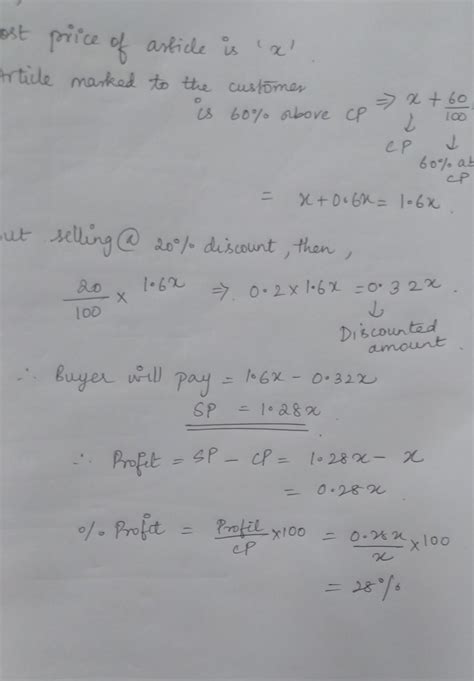 ost price of article is 'x'.
Article marked to the customer
is 60% above CP ⇒ x + 60/100
↓ ↓
CP 60% ab
CP
= x + 0.6x = 1.6x.
ut selling @ 20% discount, then,
20/100 × 1.6x ⇒ 0.2 × 1.6x = 0.32x.
↓
Discounted
amount.
∴ Buyer will pay = 1.6x - 0.32x
SP = 1.28x.
∴ Profit = SP - CP = 1.28x - x
= 0.28x.
% Profit = Profit/CP × 100 = 0.28x/x × 100
= 28%